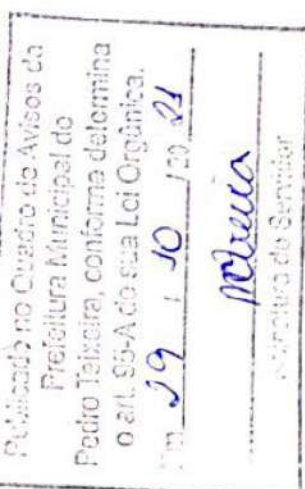 Publicado no Quadro de Avisos da
Prefeitura Municipal do
Pedro Teixeira, conforme determina
o art. 95-A do sua Lei Orgânica.
Em 29 / 10 /20 21
Assinatura do Servidor